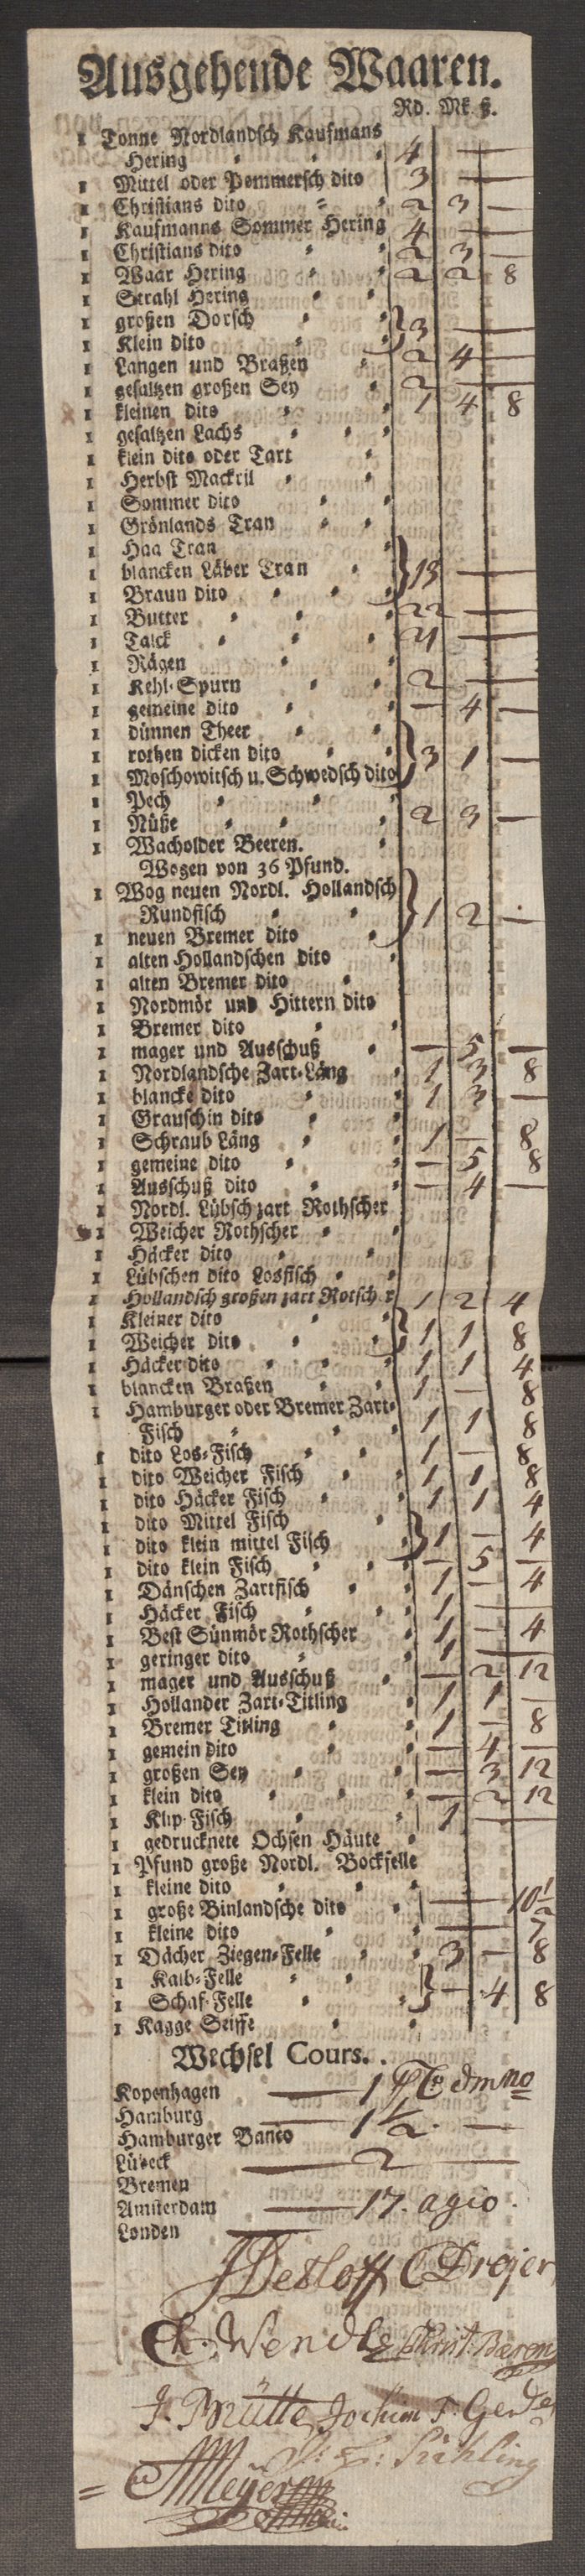 Ausgehende Waaren.
Rd. Mk. ß.
1 Tonne Nordlandsch Kaufmans
Hering 4 —
1 Mittel oder Pommersch dito 3 —
1 Christians dito 2 3 —
1 Kaufmanns Sommer Hering 4 —
1 Christians dito 2 3 —
1 Waar Hering 2 2 8
1 Strahl Hering
1 großen Dorsch } 3 —
1 Klein dito
1 Langen und Braßen 2 4 —
1 gesaltzen großen Sey 2 —
1 kleinen dito 1 4 8
1 gesaltzen Lachs
1 klein dito oder Tart
1 Herbst Mackril
1 Sommer dito
1 Grönlands Tran
1 Haa Tran
1 blancken Läber Tran } 13 —
1 Braun dito
1 Butter 22 —
1 Talck 21 —
1 Rägen
1 Kehl-Spurn 2 —
1 gemeine dito — 4 —
1 dünnen Theer
1 rothen dicken dito } 3 1 —
1 Moschowitsch u. Schwedsch dito
1 Pech
1 Nüße 2 3 —
1 Wacholder Beeren.
Wogen von 36 Pfund.
1 Wog neuen Nordl. Hollandsch
Rundfisch } 1 2 —
1 neuen Bremer dito
1 alten Hollandschen dito
1 alten Bremer dito
1 Nordmör und Hittern dito
1 Bremer dito
1 mager und Ausschuß — 5 —
1 Nordlandsche Zart-Läng 1 3 8
1 blancke dito 1 2 —
1 Grauschin dito
1 Schraub Läng 1 — 8
1 gemeine dito — 5 8
1 Ausschuß dito — 4 —
1 Nordl. Lübsch zart Rothscher
1 Weicher Rothscher
1 Häcker dito
1 Lübschen dito Losfisch
1 Hollandsch großen zart Rotscher 1 2 4
1 Kleiner dito
1 Weicher dito } 1 1 8
1 Häcker dito 1 1 4
1 blancken Braßen 1 — 8
1 Hamburger oder Bremer Zart-
Fisch 1 1 8
1 dito Los-Fisch 1 — 8
1 dito Weicher Fisch 1 1 8
1 dito Häcker Fisch 1 1 4
1 dito Mittel Fisch
1 dito klein mittel Fisch } 1 — 4
1 dito klein Fisch — 5 —
1 Dänschen Zartfisch 1 — 4
1 Häcker Fisch 1 —
1 Best Sünmör Rothscher 1 — 4
1 geringer dito 1 —
1 mager und Ausschuß — 2 12
1 Hollander Zart-Titling 1 1 —
1 Bremer Titling 1 — 8
1 gemein dito — 4 —
1 großen Sey — 3 12
1 klein dito — 2 12
1 Klip-Fisch 1 —
1 gedrucknete Ochsen Häute
1 Pfund große Nordl. Bockfelle
1 kleine dito
1 große Binlandsche dito — 10½
1 kleine dito — 7
1 Dächer Ziegen-Felle 3 — 8
1 Kalb-Felle
1 Schaf-Felle } — 4 8
1 Kagge Seiffe
Wechsel Cours.
Kopenhagen — 1
Hamburg
Hamburger Banco — 1½ —
Lübeck — 2 —
Bremen
Amsterdam — 17. agio.
Londen —
J Detloff C Drejer
Ch. Wendt Christ.
J. Brütte Jochim F. Gerdes
Meÿer